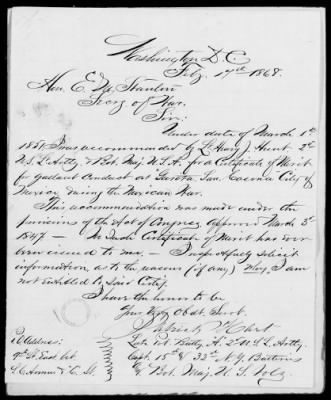 Washington D.C.
Feby. 17th 1868.
Hon. E. M. Stanton
Secry of War.
Sir:
Under date of March 1st
185 I was recommended by Lt. Henry J. Hunt 2nd
U.S. Artilty & Bvt. Maj. U.S.A. for a Certificate of Merit
for gallant Conduct at Garita San Cosme City of
Mexico during the Mexican War.
This recommendation was made under the
provisions of the Act of Congress approved March 3d
1847 — No Such Certificate of Merit has ever
been issued to me. — I respectfully solicit
information, as to the reasons (if any) Why I am
not entitled to Said Certif.
I have the honor to be
Your Very Obdt. Servt.
Patrick Hart
Late Pvt. Batty A. 2nd U.S. Arty.
Capt. 15th & 32nd N.Y. Batteries
& Bvt. Maj. U.S. Volz.
P.O. Address:
9th St. East bet.
& C. St.